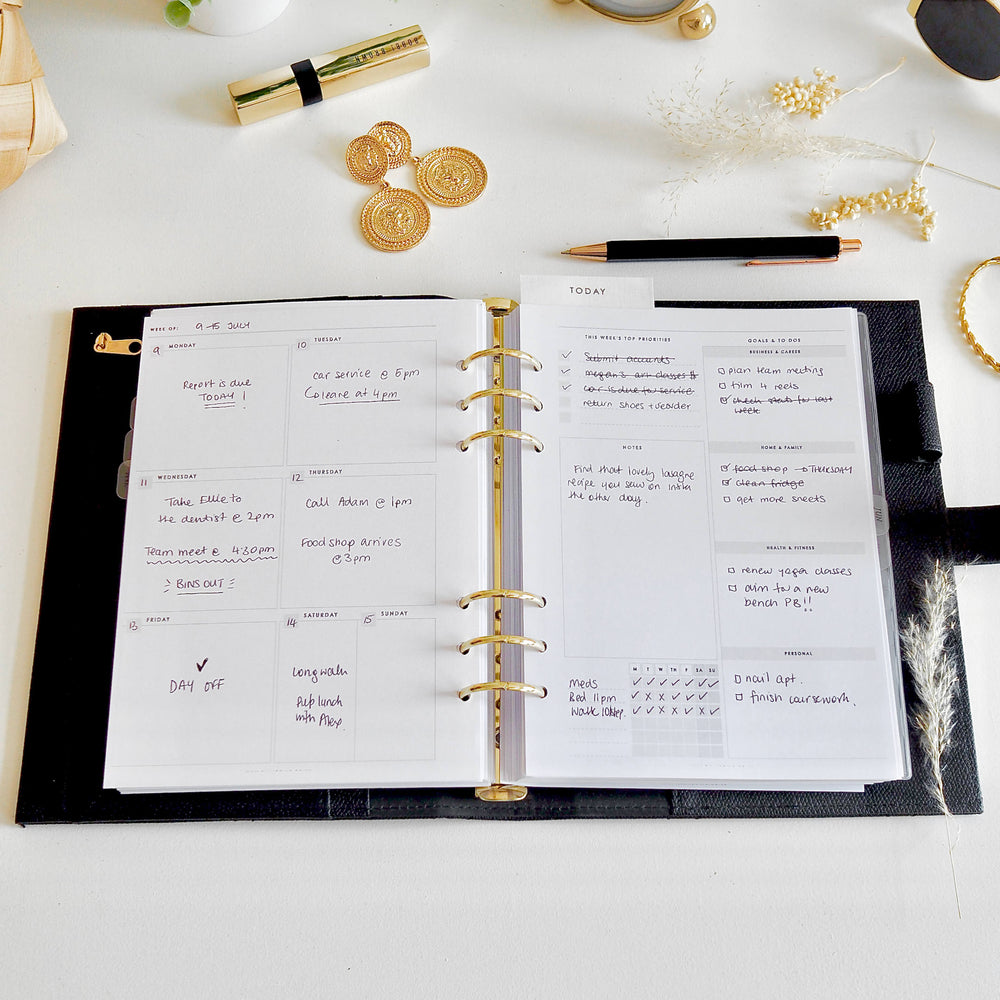 BOBBI BROWN
TODAY
WEEK OF: 9-15 JULY
9 MONDAY
Report is due
TODAY !
10 TUESDAY
car service @ 5pm
Coleare at 4pm
11 WEDNESDAY
Take Ellie to
the dentist @ 2pm
Team meet @ 4:30pm
BINS OUT
12 THURSDAY
Call Adam @ 1pm
Food shop arrives
@ 3pm
13 FRIDAY
✓
DAY OFF
14 SATURDAY
Long walk
Pub lunch
with Alex.
15 SUNDAY
THIS WEEK'S TOP PRIORITIES
✓ Submit accounts
✓ megan's art classes
✓ car is due for service
return shoes to
NOTES
Find that lovely lasagne
recipe you saw on insta
the other day.
M T W T F SA SU
Meds ✓ ✓ ✓ ✓ ✓ ✓ ✓
Bed 11pm ✓ X X ✓ ✓ ✓
Walk ✓ ✓ X X ✓ X ✓
GOALS & TO DOS
BUSINESS & CAREER
plan team meeting
film 4 reels
check stats for last
week
HOME & FAMILY
food shop → THURSDAY
clean fridge
get more sheets
HEALTH & FITNESS
renew yoga classes
aim for a new
bench PB!!
PERSONAL
nail apt.
finish coursework.
JUN